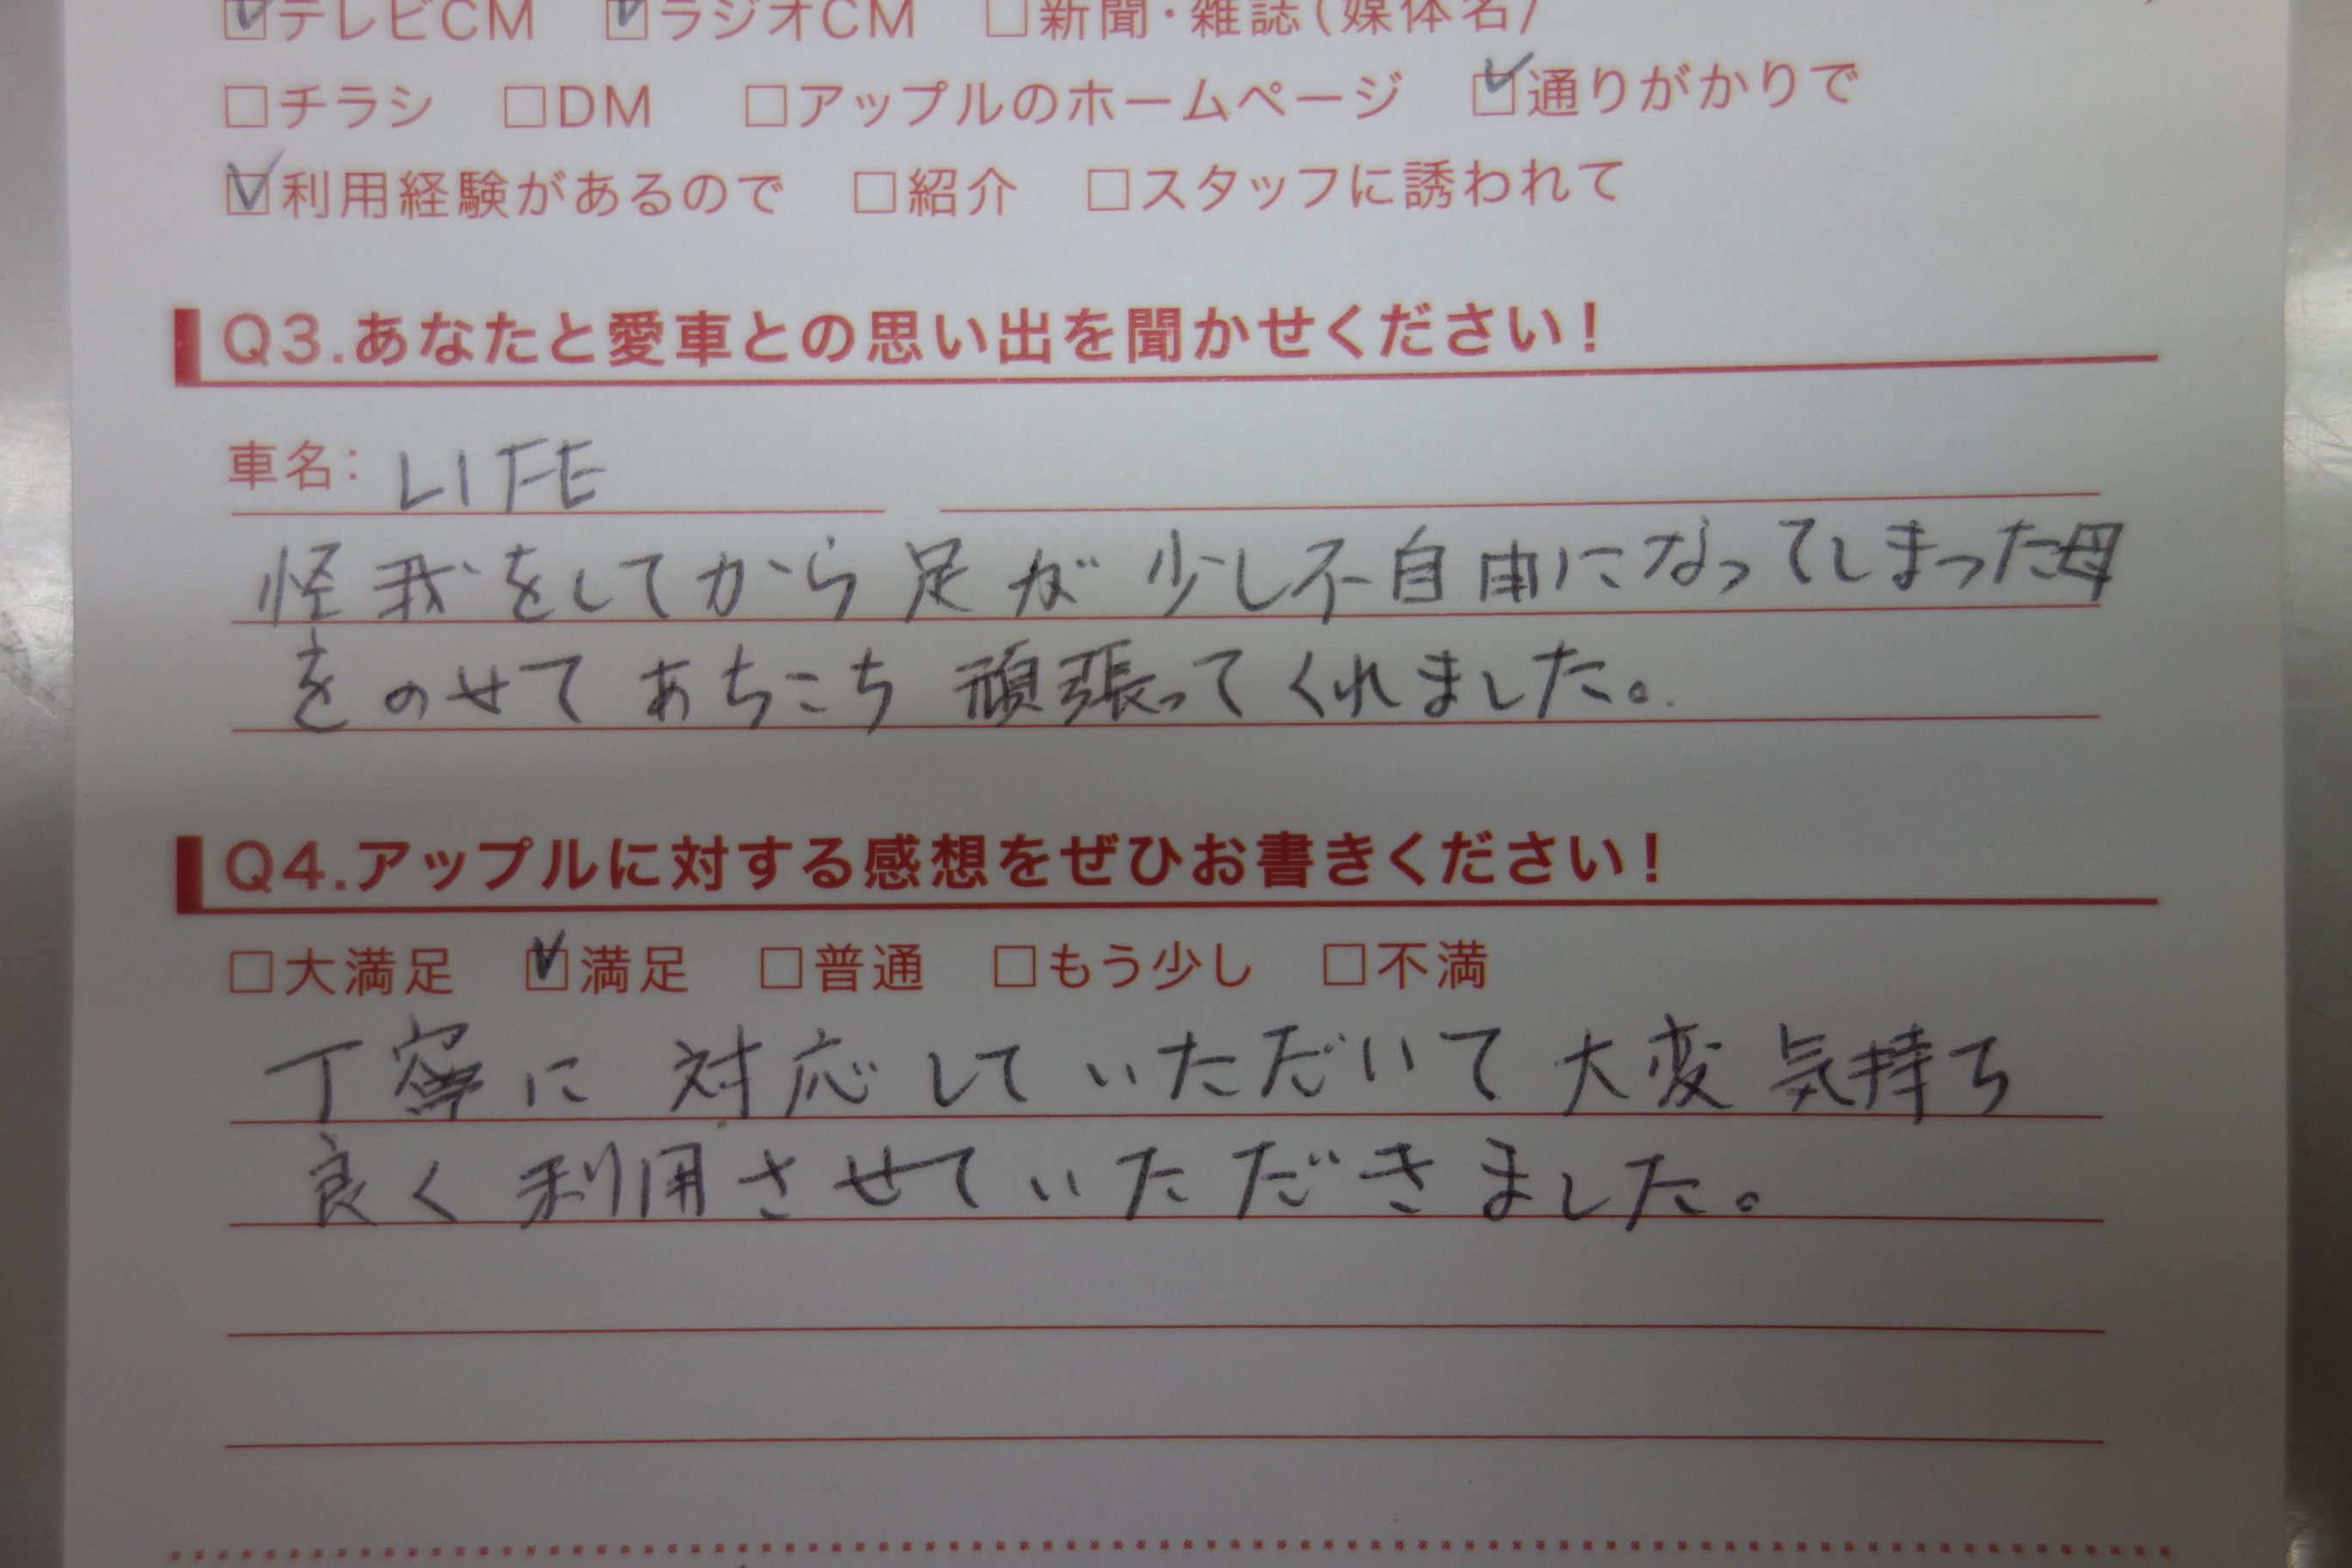 ☑テレビCM ☑ラジオCM □新聞・雑誌(媒体名/
□チラシ □DM □アップルのホームページ ☑通りがかりで
☑利用経験があるので □紹介 □スタッフに誘われて
Q3.あなたと愛車との思い出を聞かせください!
車名: LIFE
怪我をしてから足が少し不自由になってしまった母
をのせてあちこち頑張ってくれました。
Q4.アップルに対する感想をぜひお書きください!
□大満足 ☑満足 □普通 □もう少し □不満
丁寧に対応していただいて大変気持ち
良く利用させていただきました。